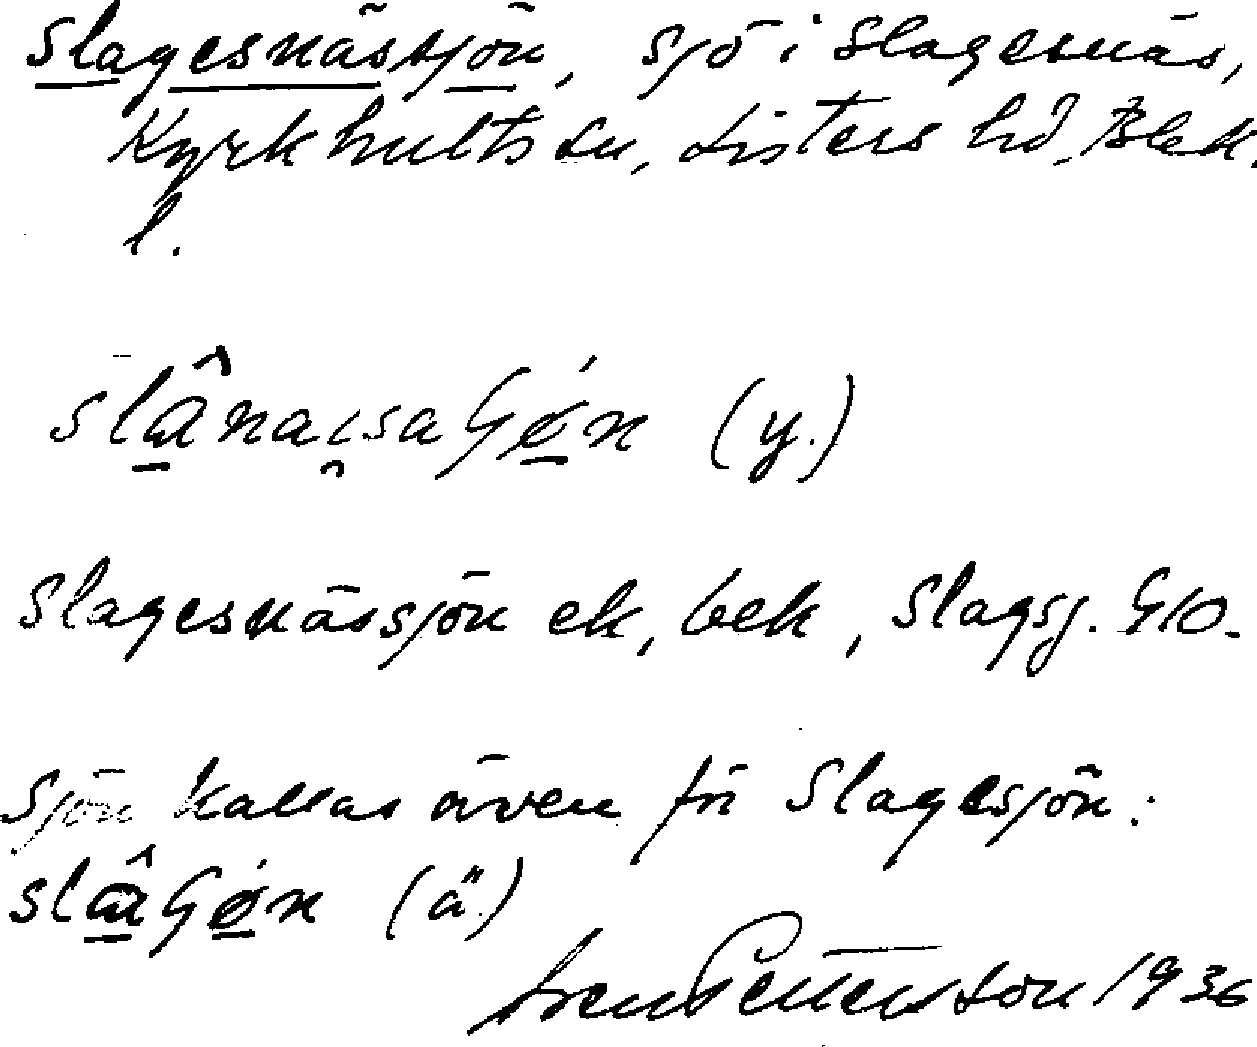 Slagesnässjön, sjö i Slagesnäs,
Kyrkhults sn, Listers hd, Blek.
l.
(y.)
Slagesnässjön ek, bek, Slagsj. G10.
Sjön kallas även för Slagesjön:
(ä.)
Sven Pettersson 1936